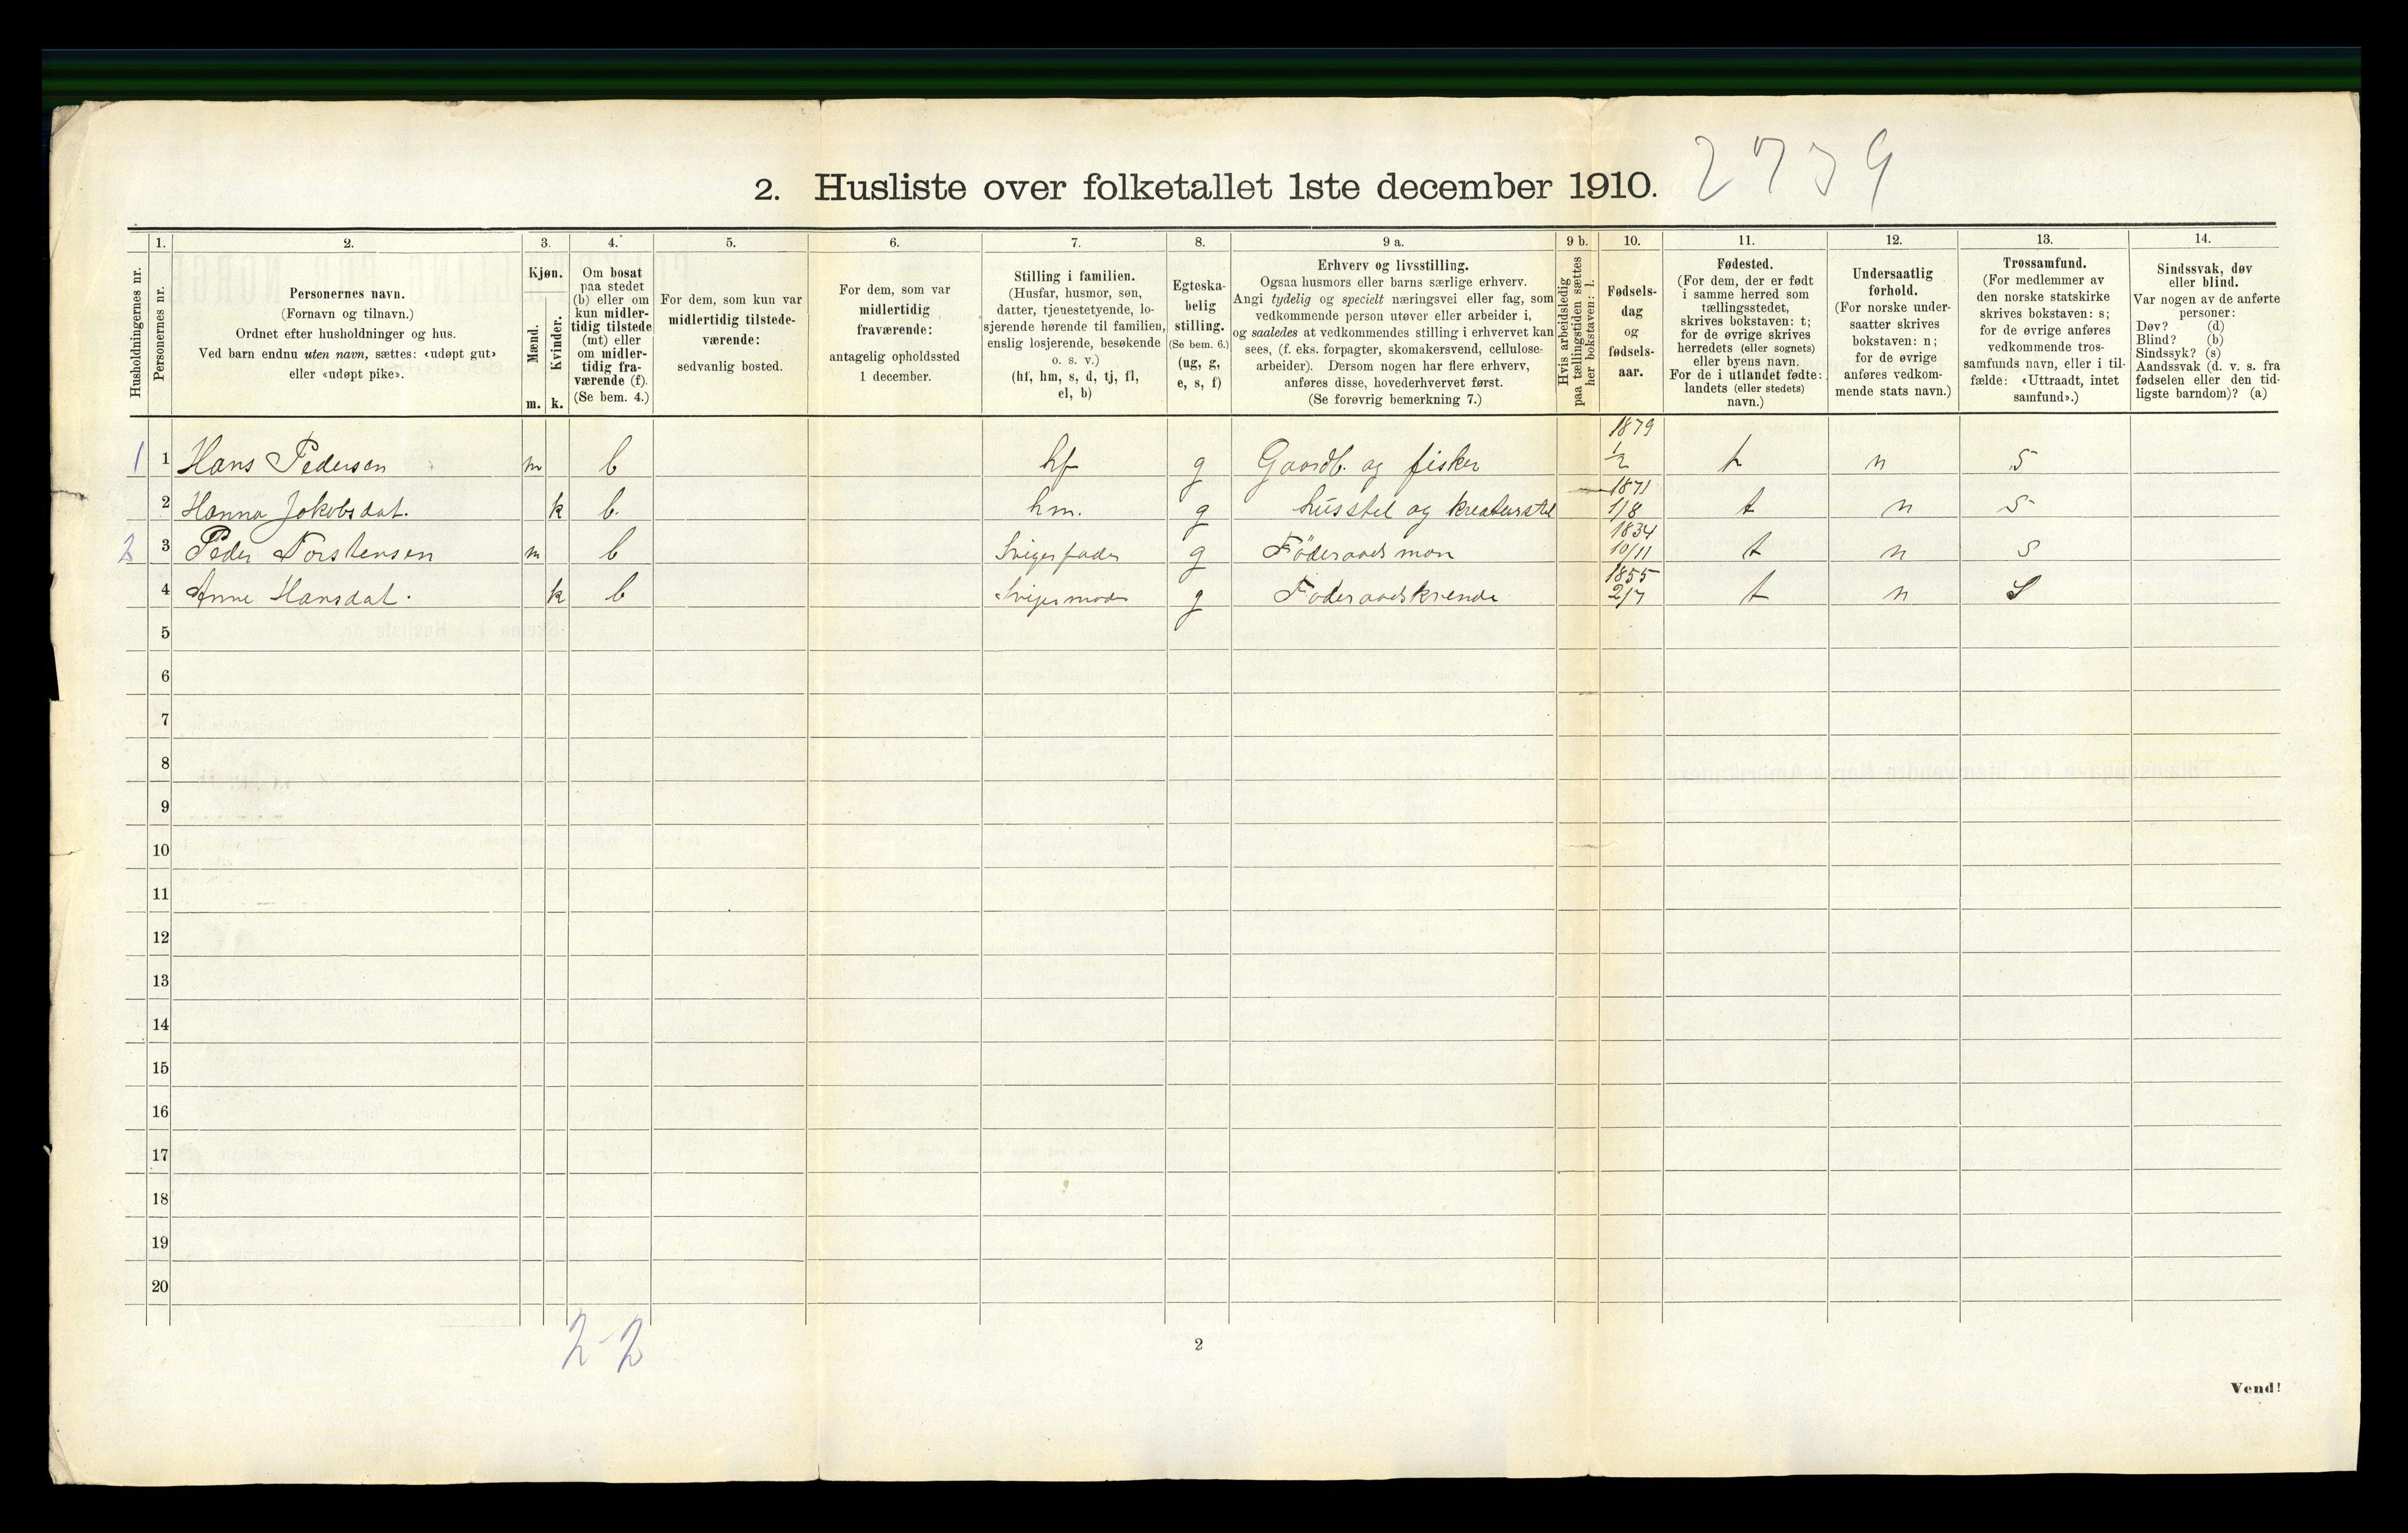 2. Husliste over folketallet 1ste december 1910. 2739
1. 2. 3. 4. 5. 6. 7. 8. 9 a. 9 b. 10. 11. 12. 13. 14.
Husholdningernes nr.
Personernes nr.
Personernes navn.
(Fornavn og tilnavn.)
Ordnet efter husholdninger og hus.
Ved barn endnu uten navn, sættes: «udøpt gut»
eller «udøpt pike».
Kjøn.
Mænd.
Kvinder.
m. k.
Om bosat
paa stedet
(b) eller om
kun midler-
tidig tilstede
(mt) eller
om midler-
tidig fra-
værende (f).
(Se bem. 4.)
For dem, som kun var
midlertidig tilstede-
værende:
sedvanlig bosted.
For dem, som var
midlertidig
fraværende:
antagelig opholdssted
1 december.
Stilling i familien.
(Husfar, husmor, søn,
datter, tjenestetyende, lo-
sjerende hørende til familien,
enslig losjerende, besøkende
o. s. v.)
(hf, hm, s, d, tj, fl,
el, b)
Egteska-
belig
stilling.
(Se bem. 6.)
(ug, g,
e, s, f)
Erhverv og livsstilling.
Ogsaa husmors eller barns særlige erhverv.
Angi tydelig og specielt næringsvei eller fag, som
vedkommende person utøver eller arbeider i,
og saaledes at vedkommendes stilling i erhvervet kan
sees, (f. eks. forpagter, skomakersvend, cellulose-
arbeider). Dersom nogen har flere erhverv,
anføres disse, hovederhvervet først.
(Se forøvrig bemerkning 7.)
Hvis arbeidsledig
paa tællingstiden sættes
her bokstaven: l.
Fødsels-
dag
og
fødsels-
aar.
Fødested.
(For dem, der er født
i samme herred som
tællingsstedet,
skrives bokstaven: t;
for de øvrige skrives
herredets (eller sognets)
eller byens navn.
For de i utlandet fødte:
landets (eller stedets)
navn.)
Undersaatlig
forhold.
(For norske under-
saatter skrives
bokstaven: n;
for de øvrige
anføres vedkom-
mende stats navn.)
Trossamfund.
(For medlemmer av
den norske statskirke
skrives bokstaven: s;
for de øvrige anføres
vedkommende tros-
samfunds navn, eller i til-
fælde: «Uttraadt, intet
samfund».)
Sindssvak, døv
eller blind.
Var nogen av de anførte
personer:
Døv? (d)
Blind? (b)
Sindssyk? (s)
Aandssvak (d. v. s. fra
fødselen eller den tid-
ligste barndom)? (a)
1 1 Hans Pedersen m b hf g Gaardb. og fisker 1879 1/2 t n s
2 Hanna Jakobsdat. k b. hm. g husstel og kreaturstel 1871 1/8 t n s
2 3 Peder Torstensen m b Svigerfader g Föderaadsman 1834 10/11 t n s
4 Anne Hansdat. k b Svigermoder g Foderaadskvende 1855 2/7 t n S
5
6
7
8
9
10
11
12
13
14
15
16
17
18
19
20
2-2
2
Vend!